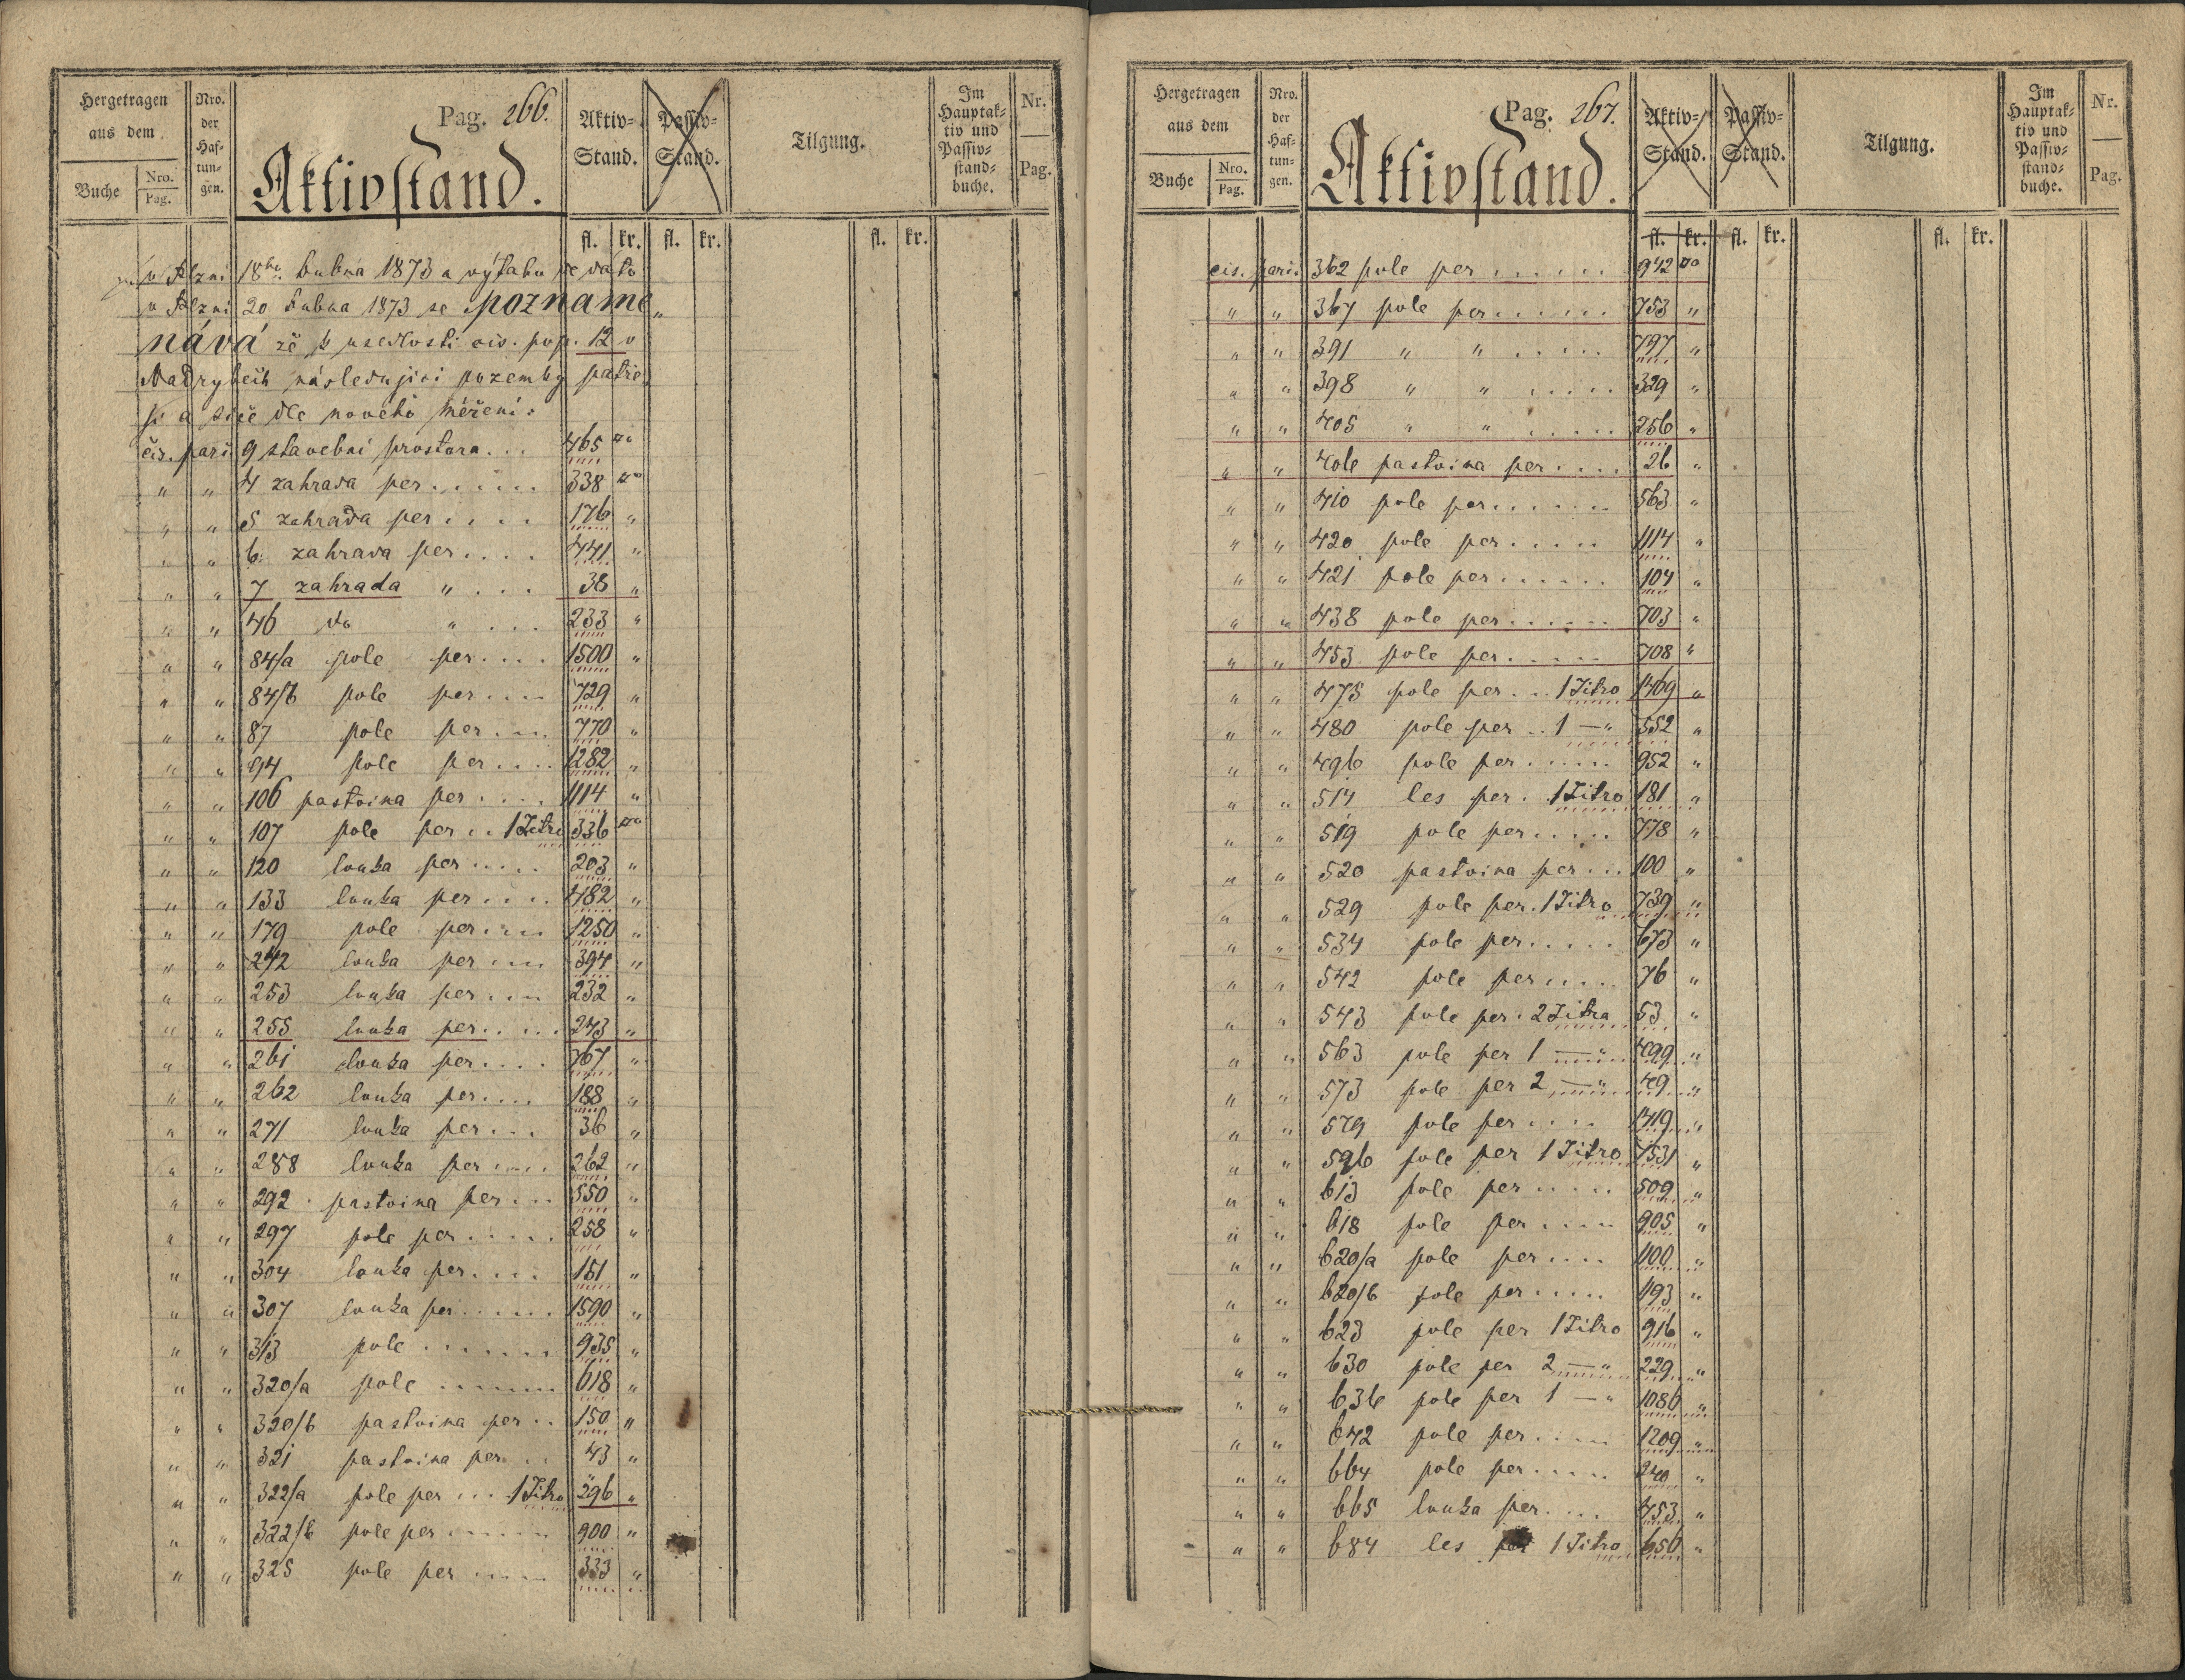 Hergetragen
aus dem
Buche
Nro.
Pag.
Nro.
der
Haf-
tun-
gen.
Pag. 266.
Aktivstand.
Aktiv-
Stand.
Passiv-
Stand.
Tilgung.
Im
Hauptak-
tiv und
Passiv-
stand-
buche.
Nr.
Pag.
fl. kr. fl. kr. fl. kr.
v Plzni 18ho dubna 1873 a výtahu de dato
v Plzni 20 dubna 1873 se pozname„
nává že k usedlosti čís. pop. 12 v
Nadrybcih následující pozemky patře„
jí a sice dle nového měření:
čís. parc. 9 stavební prostora... 465 □°
" " 4 zahrada per...... 338 □°
" " 5 zahrada per.... 176 "
" " 6 zahrada per.... 441 "
" " 7 zahrada " ... 38 "
" " 46 do " ... 233 "
" " 84/a pole per.... 1500 "
" " 84/b pole per.... 729 "
" " 87 pole per.... 770 "
" " 94 pole per.... 1282 "
" " 106 pastvina per.... 1114 "
" " 107 pole per.. 1 Jitro 336 □°
" " 120 louka per..... 203 "
" " 133 louka per.... 482 "
" " 179 pole per.... 1250 "
" " 242 louka per.... 394 "
" " 253 louka per.... 232 "
" " 255 louka per..... 243 "
" " 261 louka per.... 767 "
" " 262 louka per.... 188 "
" " 271 louka per... 36 "
" " 288 louka per.... 262 "
" " 292 pastvina per... 550 "
" " 297 pole per..... 258 "
" " 304 louka per.... 151 "
" " 307 louka per...... 1590 "
" " 313 pole ....... 935 "
" " 320/a pole ....... 618 "
" " 320/b pastvina per.. 150 "
" " 321 pastvina per... 43 "
" " 322/a pole per... 1 Jitro 296 "
" " 322/b pole per...... 900 "
" " 325 pole per..... 333 "
Hergetragen
aus dem
Buche
Nro.
Pag.
Nro.
der
Haf-
tun-
gen.
Pag. 267.
Aktivstand.
Aktiv-
Stand.
Passiv-
Stand.
Tilgung.
Im
Hauptak-
tiv und
Passiv-
stand-
buche.
Nr.
Pag.
fl. kr. fl. kr. fl. kr.
čís. parc. 362 pole per...... 942 □°
" " 367 pole per...... 753 "
" " 391 " " ..... 797 "
" " 398 " " ..... 329 "
" " 405 " " ..... 256 "
" " 406 pastvina per.... 26 "
" " 410 pole per....... 563 "
" " 420 pole per..... 1114 "
" " 421 pole per...... 104 "
" " 438 pole per...... 703 "
" " 453 pole per..... 708 "
" " 475 pole per... 1 Jitro 1469 "
" " 480 pole per.. 1 — " 552 "
" " 496 pole per...... 952 "
" " 514 les per. 1 Jitro 181 "
" " 519 pole per..... 778 "
" " 520 pastvina per... 100 "
" " 529 pole per. 1 Jitro 739 "
" " 534 pole per..... 673 "
" " 542 pole per..... 76 "
" " 543 pole per. 2 Jitra 53 "
" " 563 pole per 1 — " 499 "
" " 573 pole per 2 — " 49 "
" " 579 pole per.... 1419 "
" " 596 pole per 1 Jitro 1531 "
" " 613 pole per..... 509 "
" " 618 pole per.... 905 "
" " 620/a pole per.... 1100 "
" " 620/b pole per..... 1193 "
" " 623 pole per 1 Jitro 916 "
" " 630 pole per 2 — " 229 "
" " 636 pole per 1 — " 1086 "
" " 642 pole per..... 1209 "
" " 664 pole per..... 240 "
" " 665 louka per.... 453 "
" " 684 les per 1 Jitro 650 "